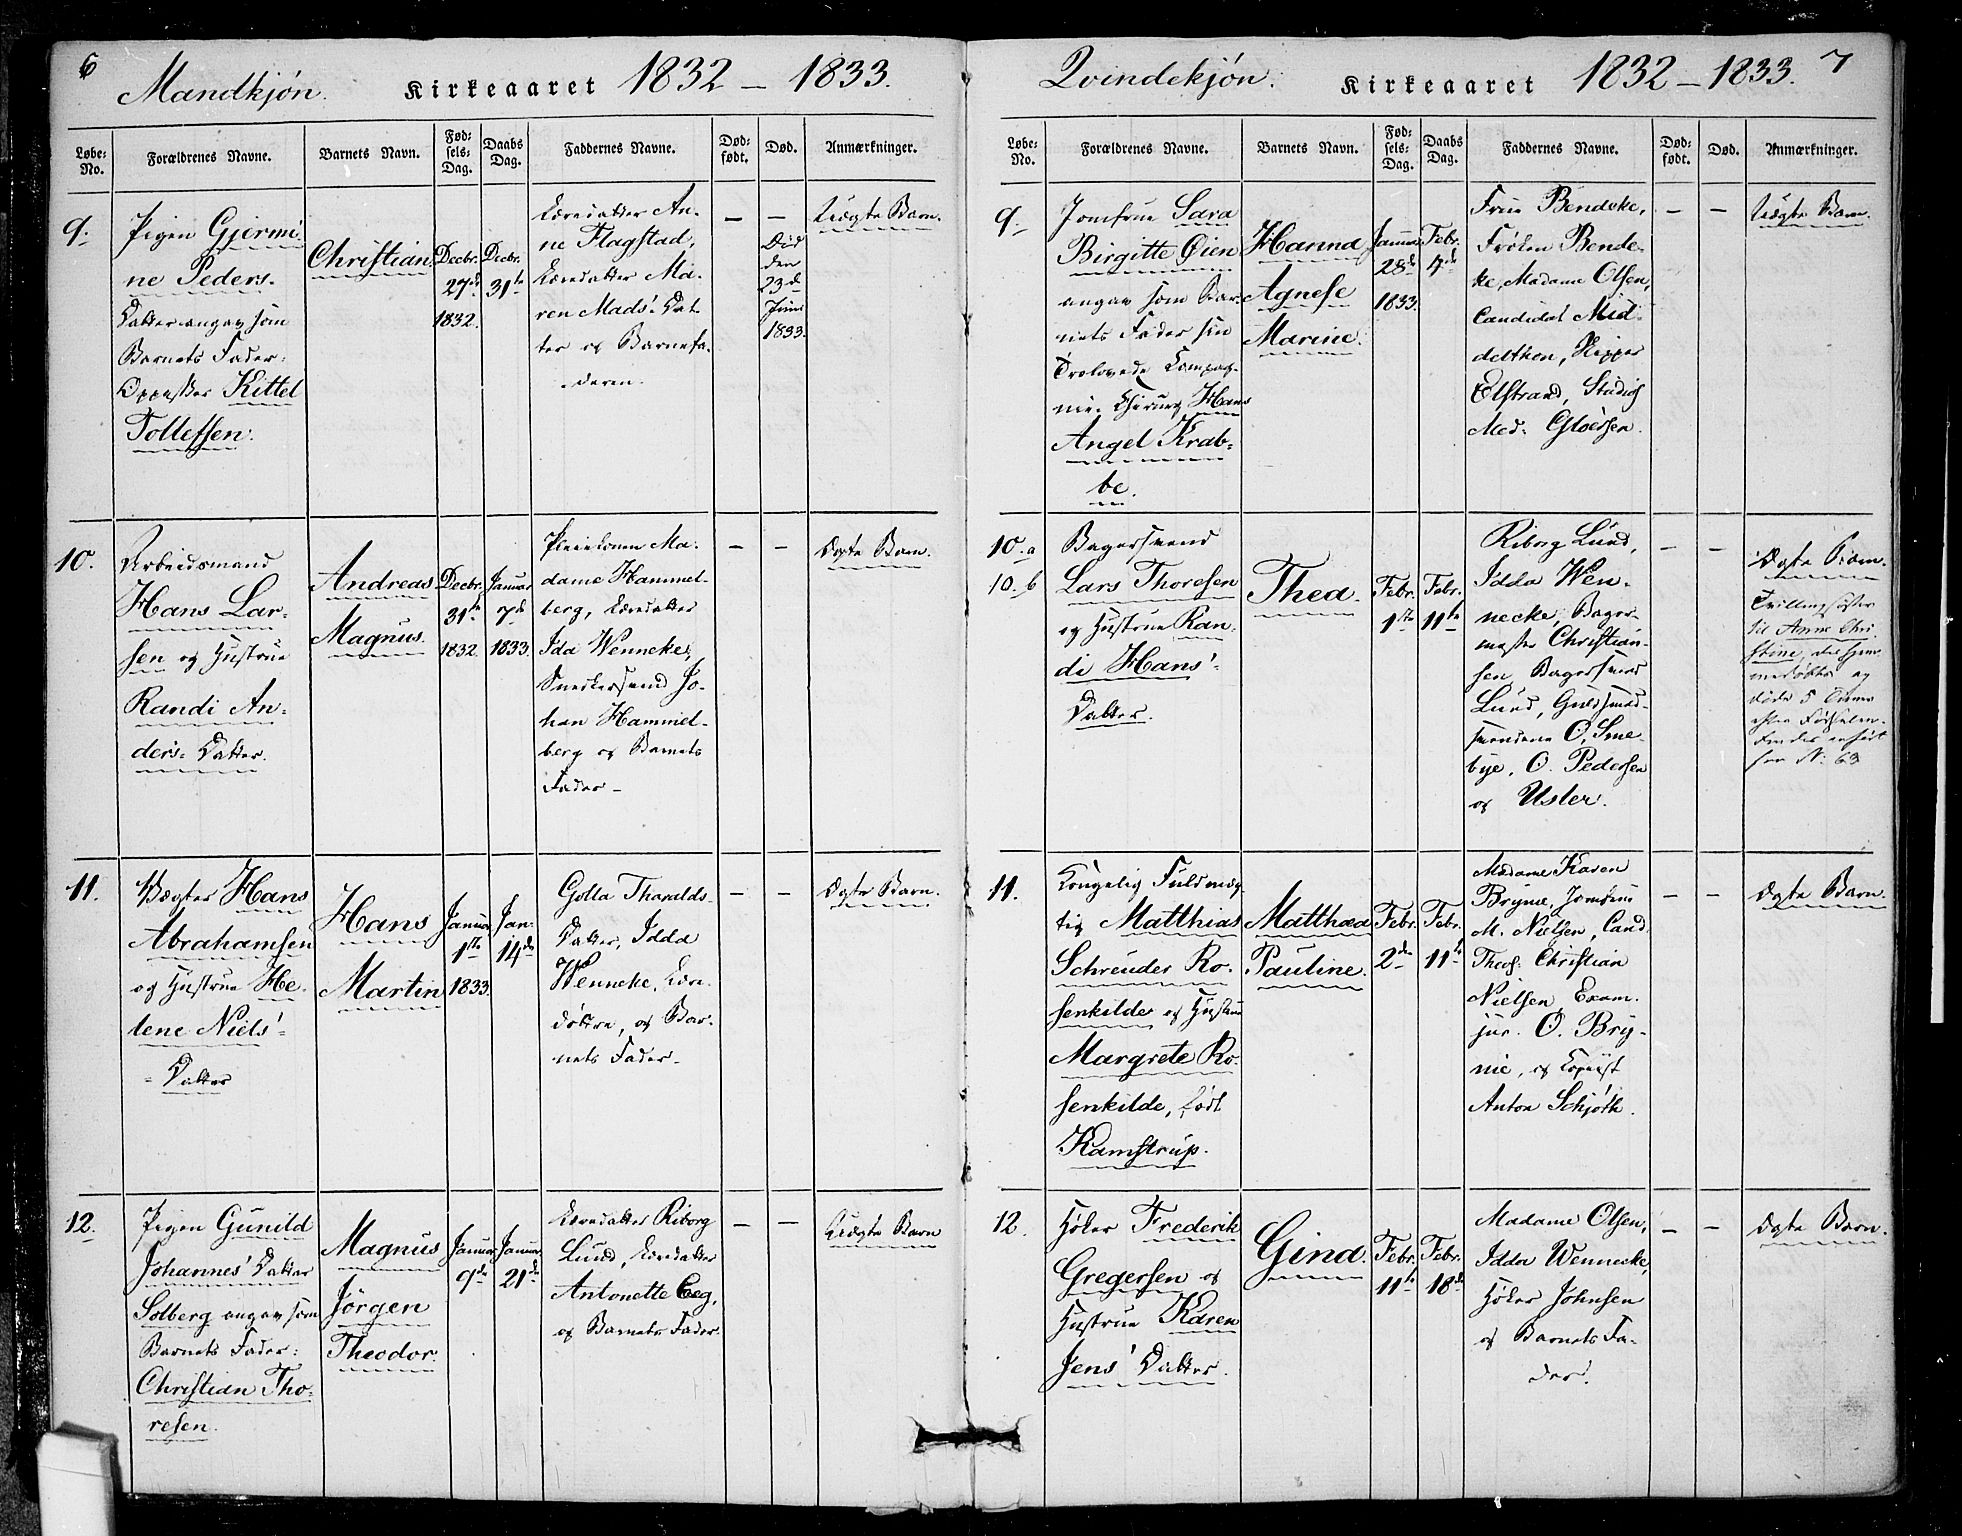 6
Mandkjøn. Kirkeaaret 1832 – 1833.
Løbe-No. Forældrenes Navne. Barnets Navn. Fødsels-Dag. Daabs Dag. Faddernes Navne. Dødfødt. Død. Anmærkninger.
9.
Pigen Gjermi-
ne Peders-
Datter angav som
Barnets Fader:
Kittel
Tollefsen.
Christian.
Decbr.
27de
1832.
Decbr.
31te
Læredatter An-
ne Flagstad,
Læredatter Ma-
ren Mads' Dat-
ter og Barnefa-
deren.
–
–
Død
den
23de
Juni
1833.
Uægte Barn.
10.
Arbeidsmand
Hans Lar-
sen og Hustrue
Randi An-
ders- Datter.
Andreas
Magnus.
Decbr.
31te
1832.
Januar
7de
1833.
Pleiekonen Ma-
dame Hammel-
berg, Læredatter
Ida Wenneke,
Snedkersvend Jo-
han Hammel-
berg og Barnets
Fader –
–
–
Ægte Barn.
11.
Vægter Hans
Abrahamsen
og Hustrue He-
lene Niels'-
Datter
Hans
Martin
Januar
1ste
1833.
Jan.
14de
Golla Tharalds-
Datter, Idda
Wenneke, Lære-
døttre, og Bar-
nets Fader –
–
–
Ægte Barn.
12.
Pigen Gunild
Johannes' Datter
Solberg angav som
Barnets Fader:
Christian Tho-
resen.
Magnus
Jörgen
Theodor.
Januar
9de
Januar
21de
Læredatter Riborg
Lund, Læredatter
Antonette Eeg,
og Barnets Fader.
–
–
Uægte Barn
Qvindekjøn. Kirkeaaret 1832 – 1833. 7
Løbe-No. Forældrenes Navne. Barnets Navn. Fødsels-Dag. Daabs Dag. Faddernes Navne. Dødfødt. Død. Anmærkninger.
9.
Jomfrue Sara
Birgitte Øien
angav som Bar-
nets Fader sin
Trolovede Compag-
nie- Chirurg Hans
Angel Krab-
be.
Hanna
Agnese
Marine.
Januar
28de
1833.
Febr.
4de
Frue Bendeke,
Frøken Bende-
ke, Madame Olsen,
Candidat Mid-
delthon, Skipper
Elstrand, Studios
Med: Gloersen.
–
–
Uægte Barn.
10.a
10.b
Bagersvend
Lars Thoresen
og Hustrue Ran-
di Hans'-
Datter.
Thea.
Febr.
1ste
Febr.
11te
Riborg Lund,
Idda Wen-
necke, Bager-
mester Christian-
sen, Bagersvend
Lund, Guldsmed-
svendene O. Sme-
bye, O. Pedersen
og Usler.
–
–
Ægte Barn.
Tvillingsøster
til Anne Chri-
stine, der hjem-
medøbtes og
døde 5 Timer
efter Fødselen.
Findes anført
No. 63
11.
Kongelig Fuldmæg-
tig Matthias
Schreuder Ro-
senkilde og Hustrue
Margrete Ro-
senkilde, født
Kamstrup.
Matthæa
Pauline.
Febr.
2den
Febr.
11te
Madame Karen
Bryme, Jomfrue
M. Nielsen, Cand.
Theol: Christian
Nielsen, Exam.
jur. O. Bry-
nie, og Copiist
Anton Schjøth.
–
–
Ægte Barn.
12.
Høker Frederik
Gregersen og
Hustrue Karen
Jens' Datter.
Gina.
Febr.
11te
Febr.
18de
Madame Olsen,
Idda Wennecke,
Høker Johnsen
og Barnets Fa-
der.
–
–
Ægte Barn.